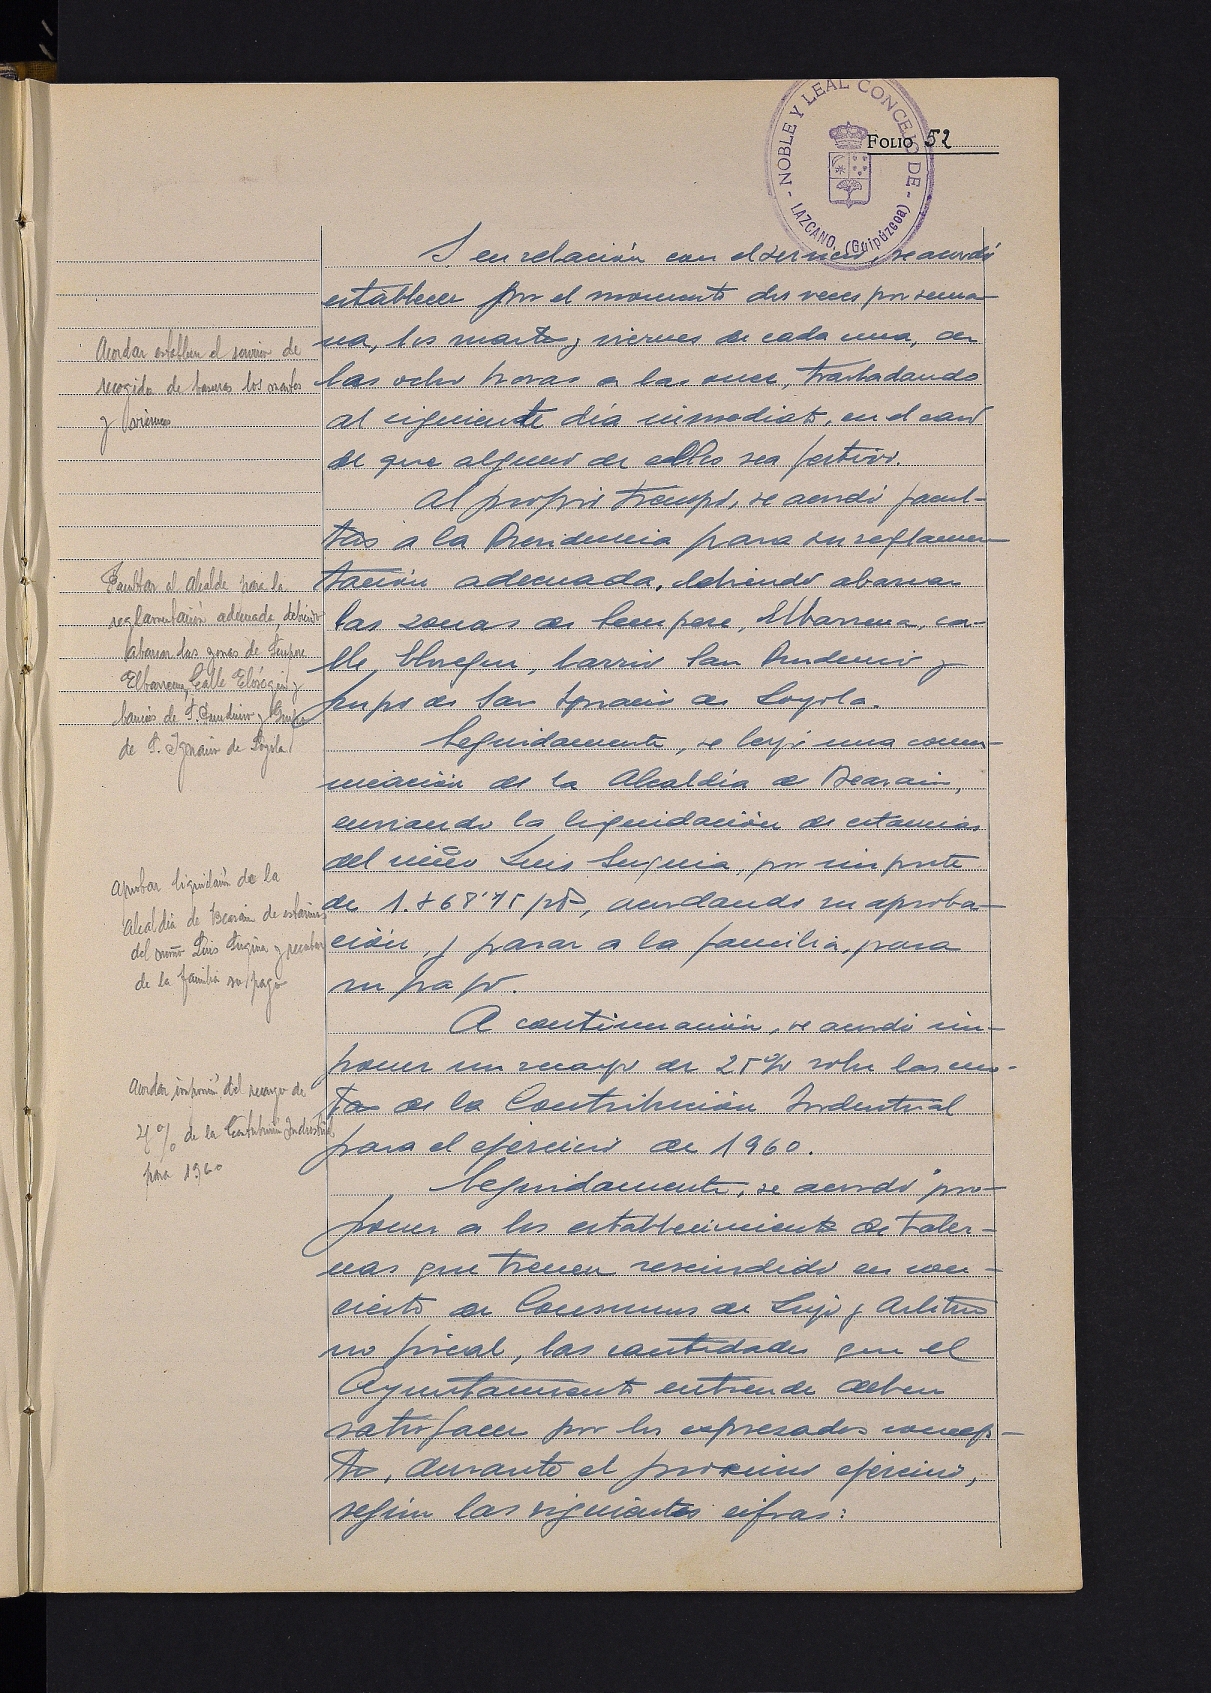 NOBLE Y LEAL CONCEJO DE
LAZCANO. (Guipúzcoa)
FOLIO 52
Y en relación con el servicio, se acordó
establecer por el momento dos veces por sema-
na, los martes y viernes de cada una, de
las ocho horas a las once, trasladando
al siguiente día inmediato, en el caso
de que alguno de ellos sea festivo.
Al propio tiempo, se acordó facul-
tar a la Presidencia para su reglamen-
tación adecuada, debiendo abarcar
las zonas de Sempere, Elbarrena, ca-
lle Elosegui, barrio San Prudencio y
grupo de San Ignacio de Loyola.
Seguidamente, se leyó una comu-
nicación de la Alcaldía de Beasain,
enviando la liquidación de estancias
del niño Luis Suquia, por importe
de 1.868'75 pts, acordando su aproba-
ción y pasar a la familia, para
su pago.
A continuación, se acordó im-
poner un recargo de 25% sobre las cuo-
tas de la Contribución Industrial
para el ejercicio de 1960.
Seguidamente, se acordó pro-
poner a los establecimientos de taber-
nas que tienen rescindido su con-
cierto de Consumos de Lujo y Arbitrio
no fiscal, las cantidades que el
Ayuntamiento entiende deben
satisfacer por los expresados concep-
tos, durante el próximo ejercicio,
según las siguientes cifras:
Acordar establecer el servicio de
recogida de basuras los martes
y viernes
Facultar al Alcalde para la
reglamentación adecuada, debiendo
abarcar las zonas de Sempere
Elbarrena, Calle Elósegui y
barrios de S. Prudencio y Grupo
de S. Ignacio de Loyola
Aprobar liquidación de la
Alcaldía de Beasain de estancias
del niño Luis Suquia y recabar
de la familia su pago
Acordar imposición del recargo de
25% de la Contribución Industrial
para 1960